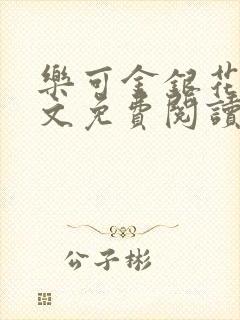 樂可金銀花
文免費閱讀
公子彬